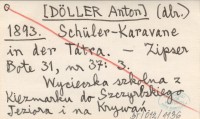 [DÖLLER Anton] (dbr.)
1893. Schüler-Karavane
in der Tátra. — Zipser
Bote 31, nr 37: 3.
Wycieczka szkolna z
Kiezmarku do Szczyrbskiego
Jeziora i na Krywań.